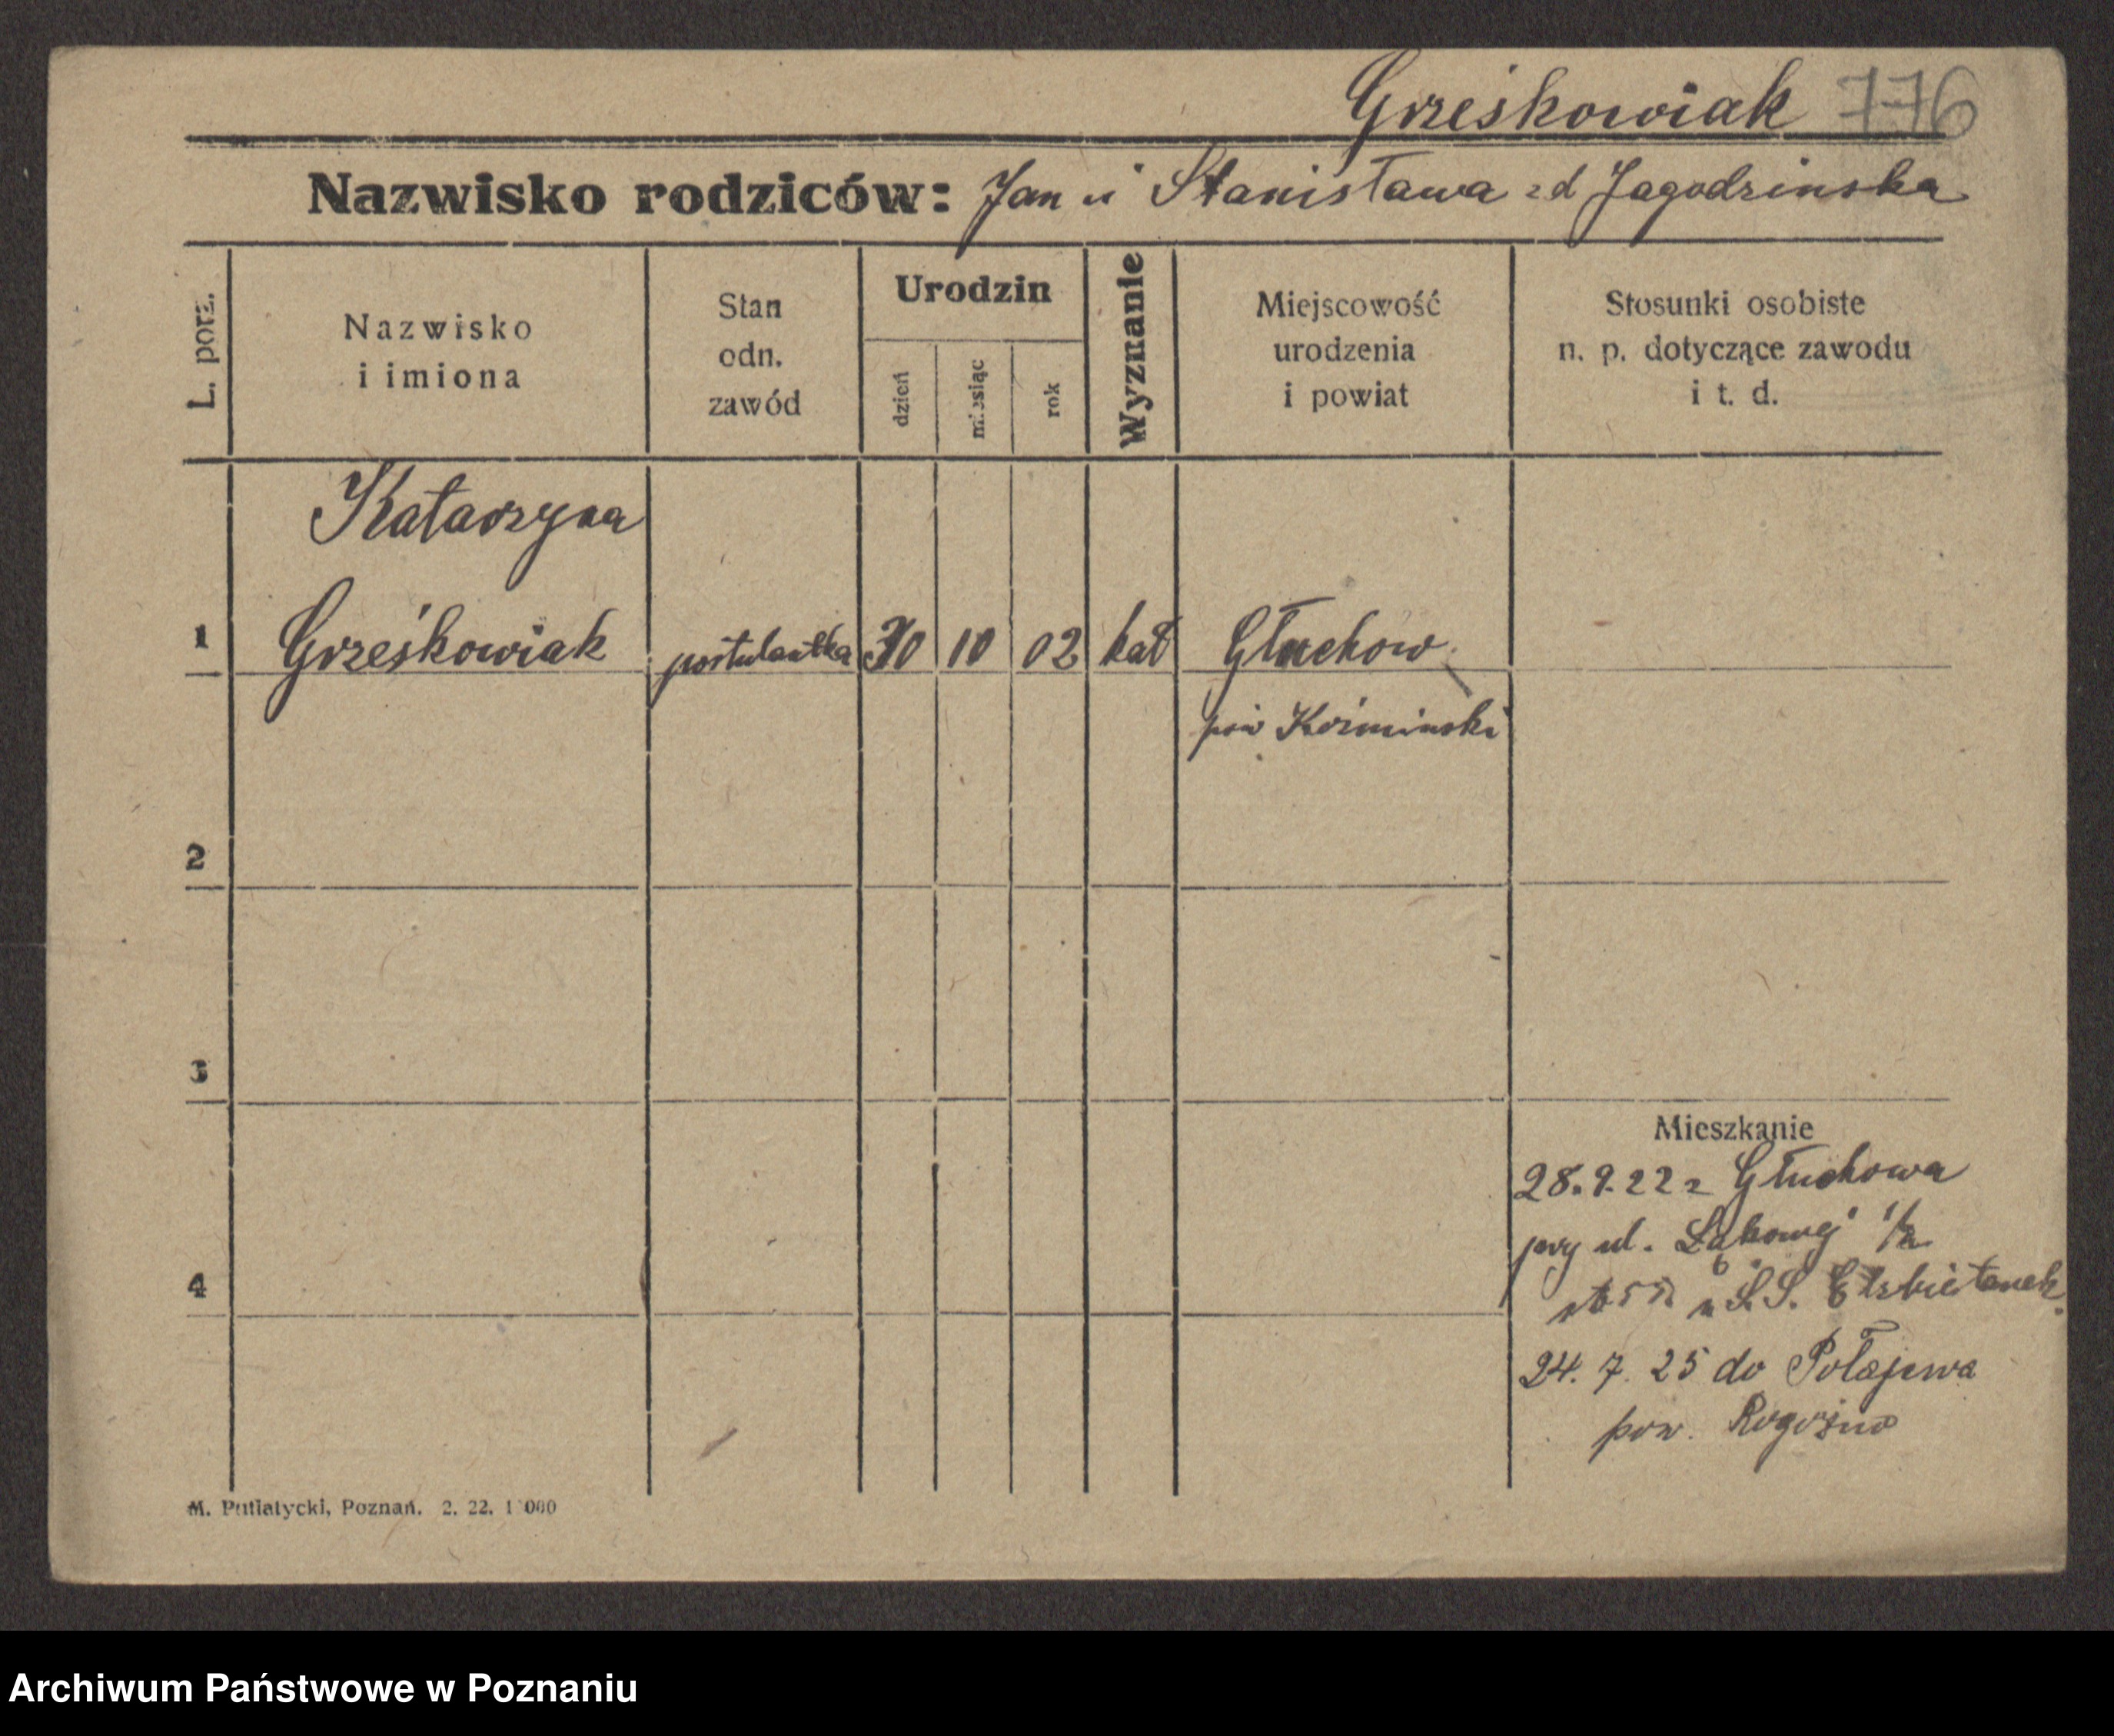 Grześkowiak 776
Nazwisko rodziców: Jan i Stanisława zd Jagodzinska
L. porz.
Nazwisko
i imiona
Stan
odn.
zawód
Urodzin
dzień
miesiąc
rok
Wyznanie
Miejscowość
urodzenia
i powiat
Stosunki osobiste
n. p. dotyczące zawodu
i t. d.
Katarzyna
1 Grześkowiak postulantka 30 10 02 kat Głuchow
pow Kozminski
2
3
Mieszkanie
28.9.22 z Głuchowa
przy ul. Łąkowej 1/2
4
u S.S. Elzbietanek.
24. 7. 25 do Połajewa
pow. Rogoźno
M. Putiatycki, Poznań. 2. 22. 1 000
Archiwum Państwowe w Poznaniu